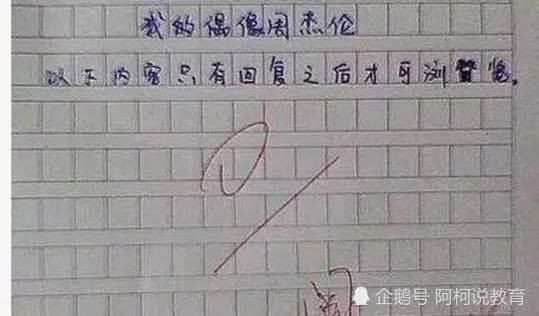 我的偶像周杰伦
以下内容只有回复之后才可浏览。
阅
企鹅号 阿柯说教育